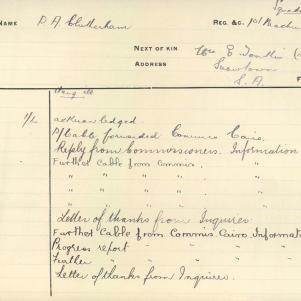 Squad
NAME P A Clutterham REG. &C. 1st Machin
NEXT OF KIN Mrs E
ADDRESS Snowtown
S. A.
F
Dang ill
acknowledged
Cable forwarded Commrs Cairo.
Reply from Commissioners. Information
Further Cable from Commis.
" " " "
" " " "
" " " "
Letter of thanks from Inquirer
Further Cable from Commis. Cairo, Informati
Progress report " " "
Further " " " "
Letter of thanks from Inquirer.